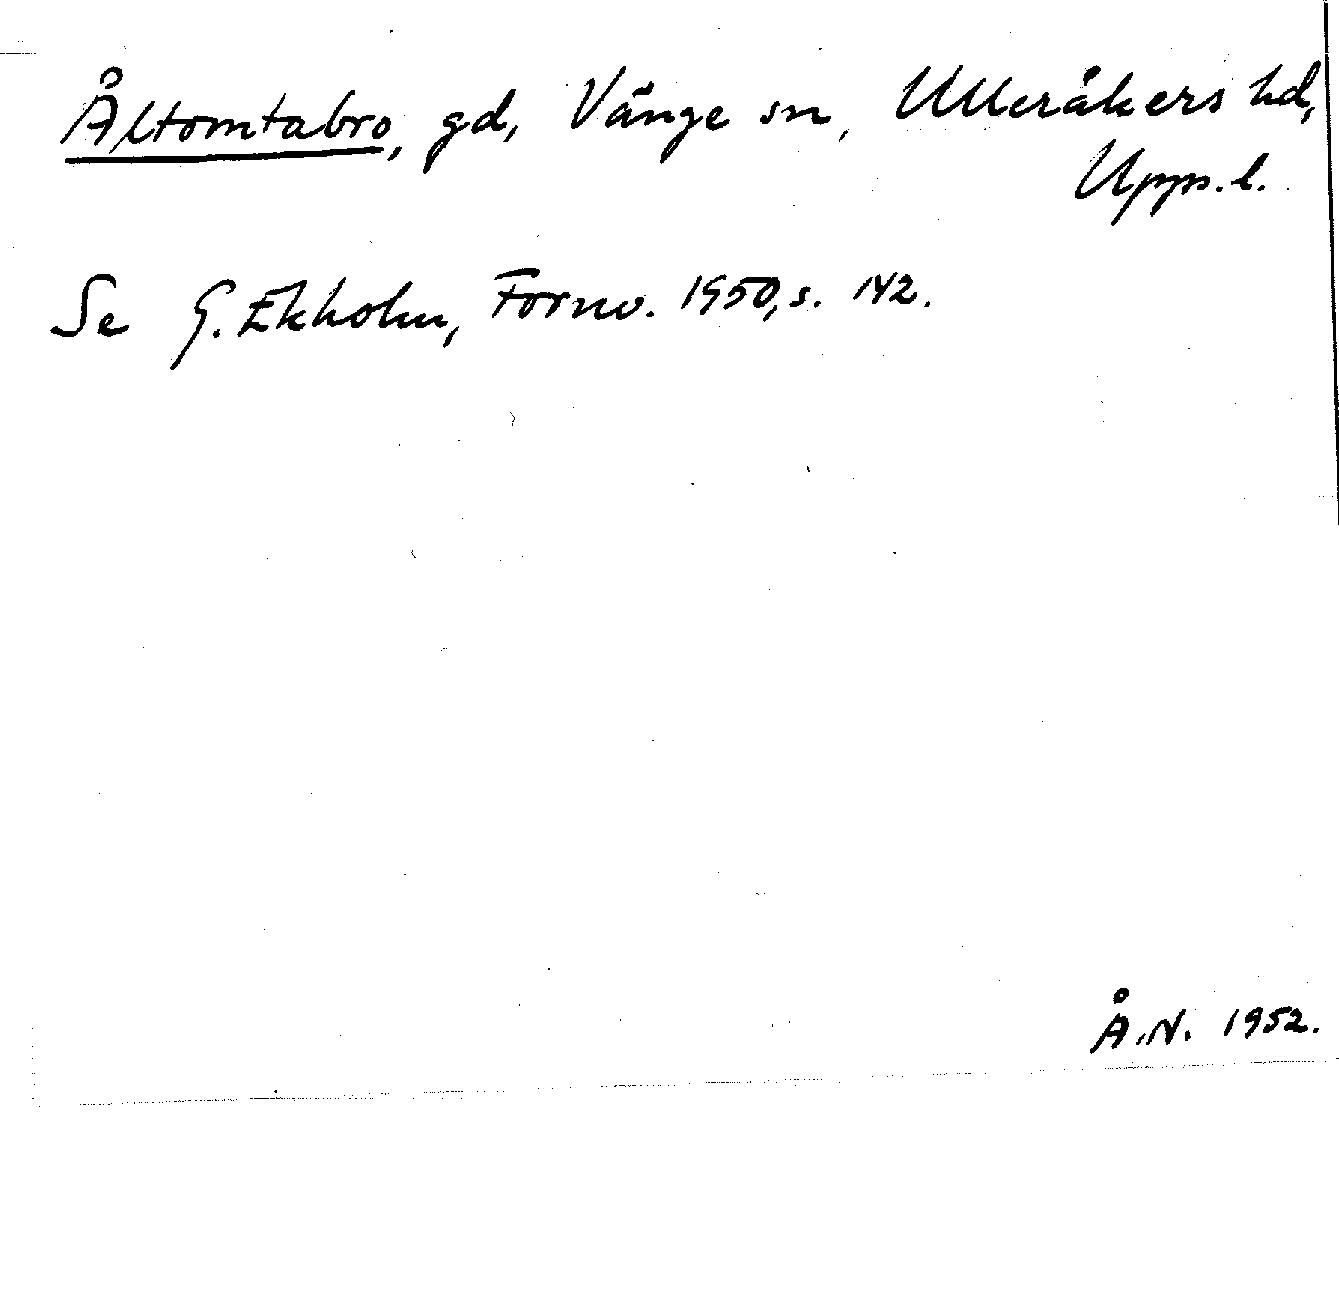 Åltomtabro, gd, Vänge sn, Ulleråkers hd,
Upps. l.
Se G. Ekholm, Fornv. 1950, s. 142.
Å.N. 1952.